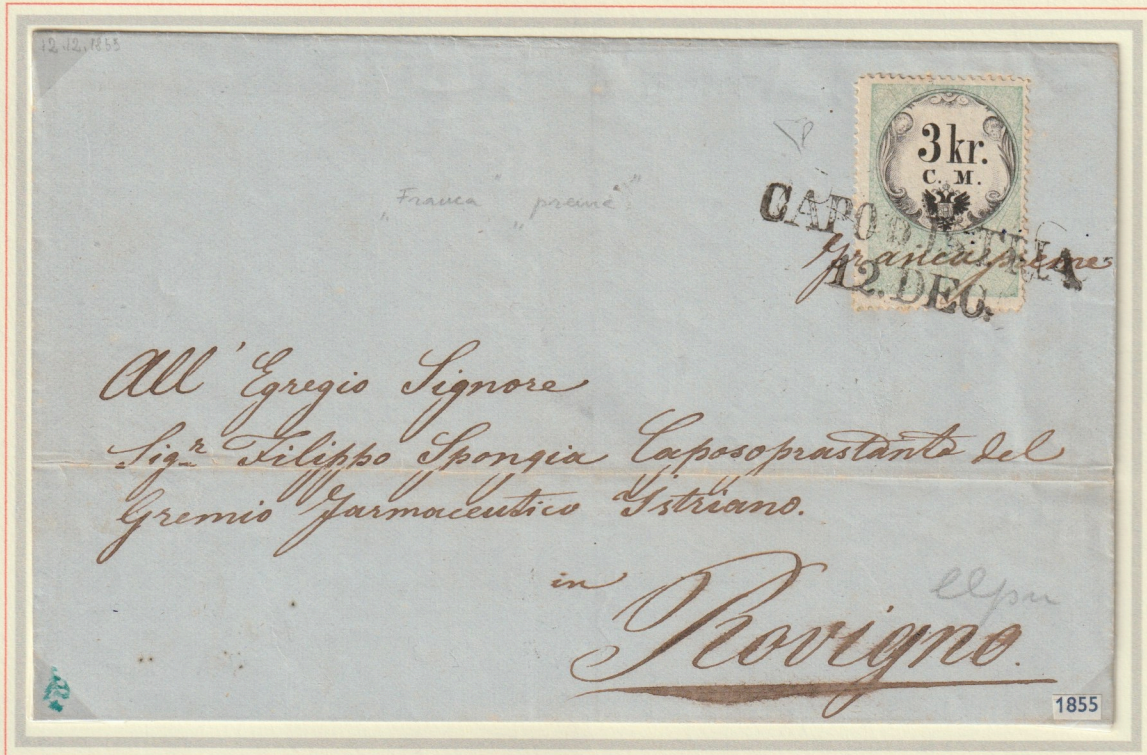 12.12.1855
3 kr.
C. M.
CAPO D'ISTRIA
12. DEC.
Franca preme
„Franca" „preme"
All' Egregio Signore
Sigr Filippo Spongia Caposoprastante del
Gremio Farmaceutico Istriano.
in
Rovigno.
1855